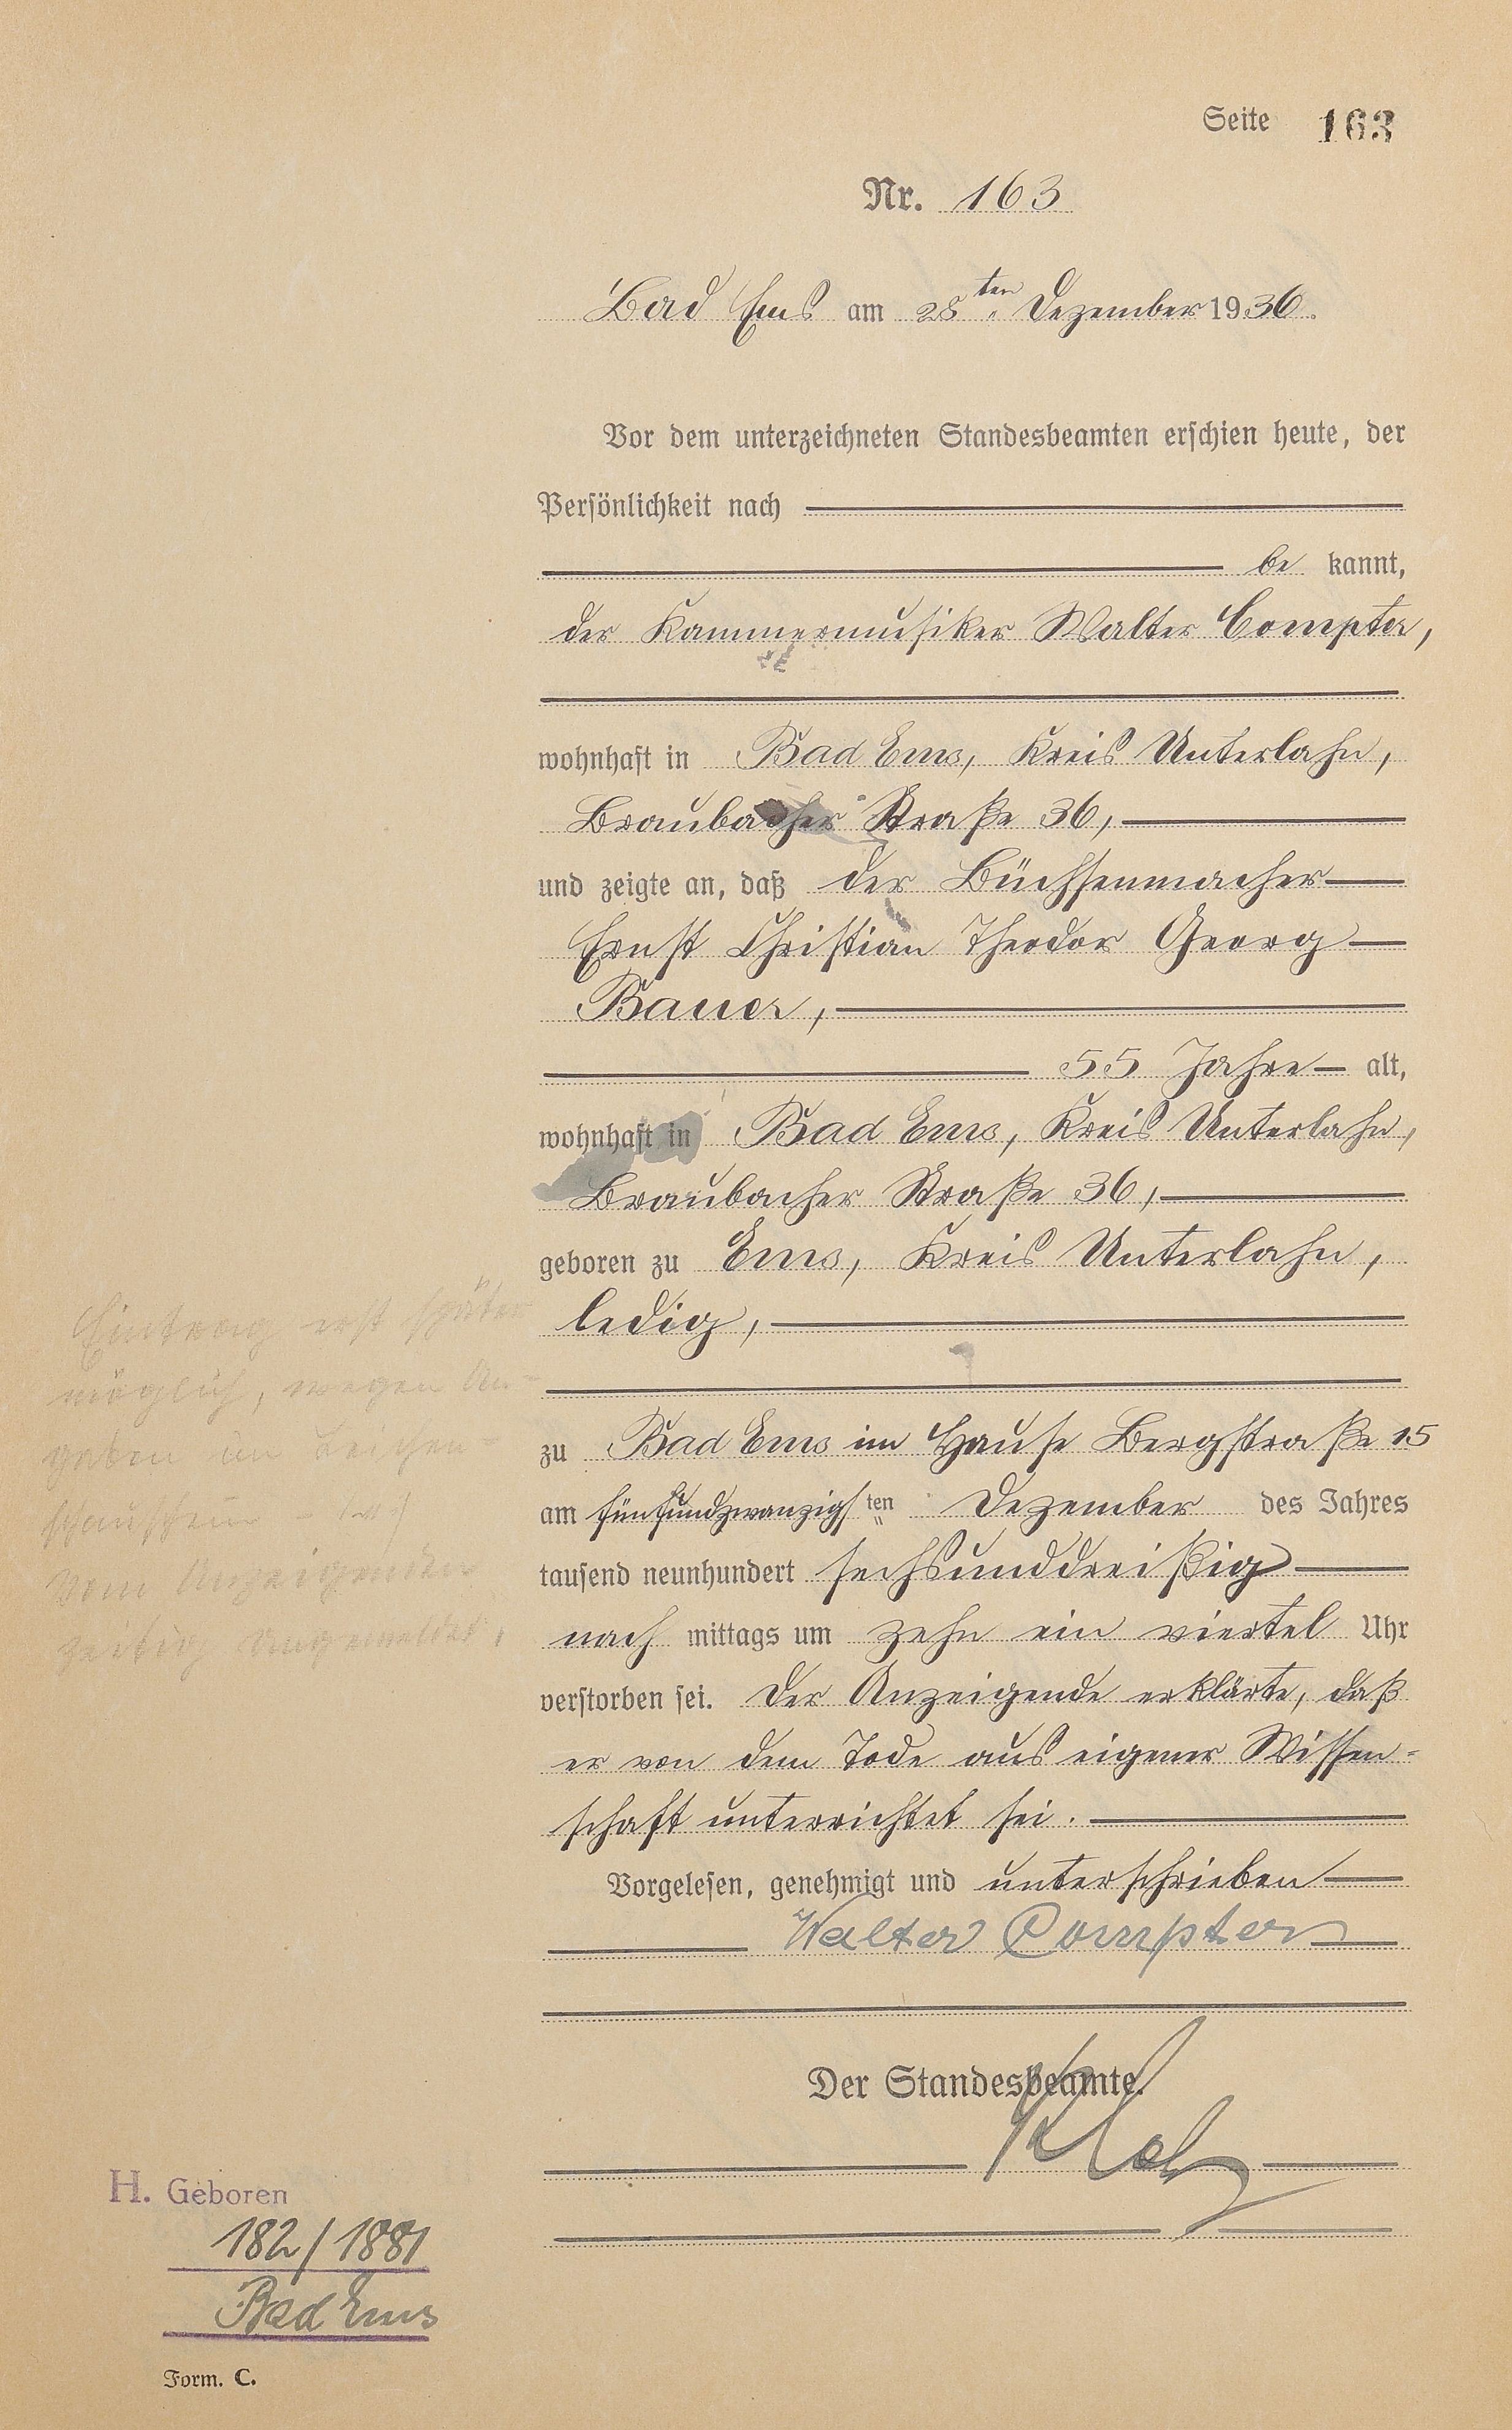 Seite 163
Nr. 163
Bad Ems am 28ten Dezember 1936.
Vor dem unterzeichneten Standesbeamten erschien heute, der
Persönlichkeit nach
be kannt,
der Kammermusiker Walter Compter,
wohnhaft in Bad Ems, Kreis Unterlahn,
Braubacher Straße 36,
und zeigte an, daß der Büchsenmacher
Ernst Christian Theodor Georg
Bauer,
55 Jahre alt,
wohnhaft in Bad Ems, Kreis Unterlahn,
Braubacher Straße 36,
geboren zu Ems, Kreis Unterlahn,
ledig,
zu Bad Ems im Hause Bergstraße 15
am fünfundzwanzigsten Dezember des Jahres
tausend neunhundert sechsunddreißig
nach mittags um zehn ein viertel Uhr
verstorben sei. Der Anzeigende erklärte, daß
er von dem Tode aus eigener Wissen-
schaft unterrichtet sei.
Vorgelesen, genehmigt und unterschrieben
Walter Compter
Der Standesbeamte.
Eintrag erst später
möglich, wegen An-
gaben im Leichen-
schauschein
vom Anzeigenden
zeitig angemeldet.
H. Geboren
182/1881
Bad Ems
Form. C.